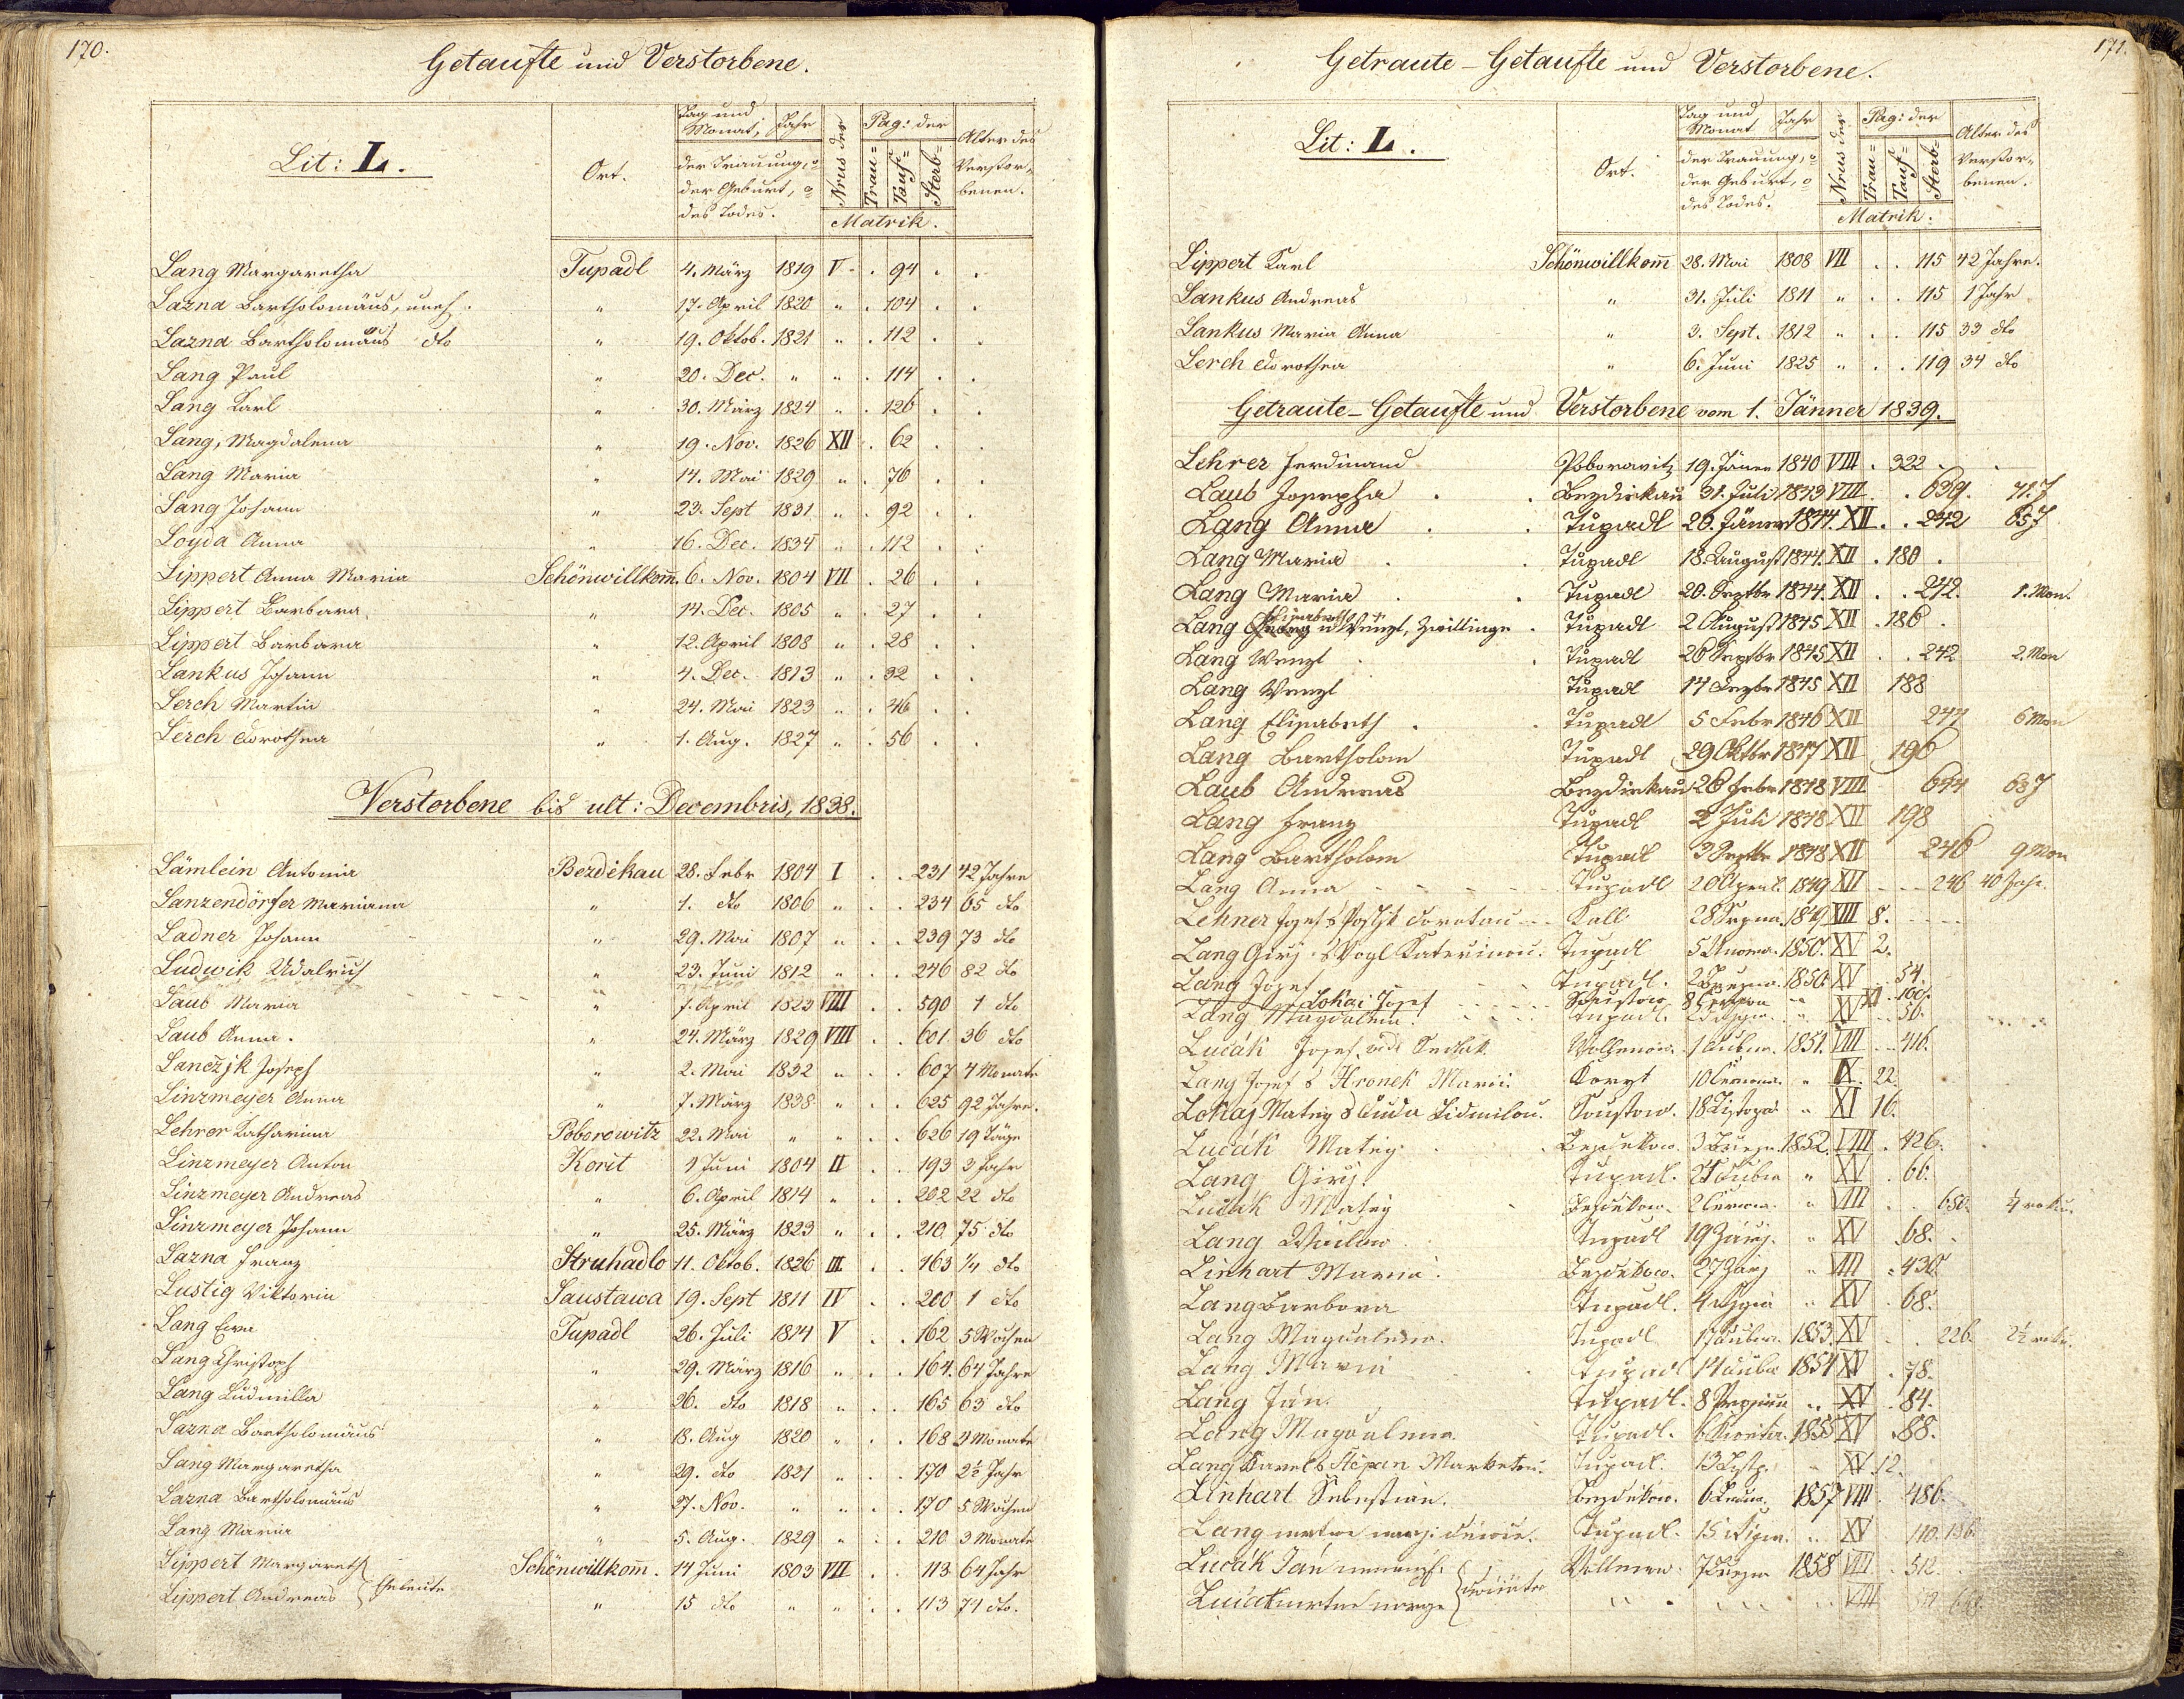 170.
Getaufte und Verstorbene.
Lit: L.
Ort.
Tag und Monat, Jahr
der Trauung, der Geburt, des Todes.
Nrus der
Pag: der
Trau= Tauf= Sterb=
Matrik.
Alter des Verstorbenen.
Lang Margaretha Tupadl 4. März 1819 V . 94 . .
Lazna Bartholomäus, uneh. " 17. April 1820 " . 104 . .
Lazna Bartholomäus dto " 19. Oktob. 1821 " . 112 . .
Lang Paul " 20. Dec. " " . 114 . .
Lang Karl " 30. März 1824 " . 126 . .
Lang, Magdalena " 19. Nov. 1826 XII . 62 . .
Lang Maria " 14. Mai 1829 " . 76 . .
Lang Johann " 23. Sept 1831 " . 92 . .
Loyda Anna " 16. Dec. 1834 " . 112 . .
Lippert Anna Maria Schönwillkom̄. 6. Nov. 1804 VII . 26 . .
Lippert Barbara " 14. Dec. 1805 " . 27 . .
Lippert Barbara " 12. April 1808 " . 28 . .
Lankus Johann " 4. Dec. 1813 " . 32 . .
Lerch Martin " 24. Mai 1823 " . 46 . .
Lerch Dorothea " 1. Aug. 1827 " . 56 . .
Verstorbene bis ult: Decembris, 1838.
Lämlein Antonia Bezdékau 28. Febr 1804 I . . 231 42 Jahre
Lanzendörfer Mariana " 1. dto 1806 " . . 234 65 dto
Ladner Johann " 29. Mai 1807 " . . 239 73 dto
Ludwik Udalrich " 23. Juni 1812 " . . 246 82 dto
Laub Maria " 7. April 1823 VIII . . 590 1 dto
Laub Anna. " 24. März 1829 VIII . . 601 36 dto
Lanczjk Joseph " 2. Mai 1832 " . . 607 4 Monate
Linzmeyer Anna " 7. März 1838 " . . 625 92 Jahre.
Lehrer Katharina Poborowitz 22. Mai " " . . 626 19 Täge
Linzmeyer Anton Korit 9 Juni 1804 II . . 193 3 Jahr
Linzmeyer Andreas " 6. April 1814 " . . 202 22 dto
Linzmeyer Johann " 25. März 1823 " . . 210 75 dto
Lazna Franz Struhadlo 11. Oktob. 1826 III . . 163 1/4 dto
Lustig Viktoria Saustawa 19. Sept 1811 IV . . 200 1 dto
Lang Eva Tupadl 26. Juli 1814 V . . 162 5 Wochen
Lang Christoph " 29. März 1816 " . . 164. 64 Jahre
Lang Ludmilla " 26. dto 1818 " . . 165 63 dto
Lazna Bartholomäus " 18. Aug 1820 " . . 168 2 Monate
Lang Margaretha " 29. dto 1821 " . . 170 2½ Jahr
Lazna Bartholomäus " 27. Nov. " " . . 170 5 Wochen
Lang Maria " 5. Aug. 1829 " . . 210 3 Monate
Lippert Margareth Schönwillkom̄. 14 Juni 1803 VII . . 113 64 Jahr
Lippert Andreas } Eheleute " 15 dto " " . . 113 74 dto.
171.
Getraute - Getaufte und Verstorbene.
Lit: L.
Ort.
Tag und Monat Jahr
der Trauung, der Geburt, des Todes.
Nrus der
Pag: der
Trau= Tauf= Sterb=
Matrik.
Alter des Verstorbenen.
Lippert Karl Schönwillkom̄ 28. Mai 1808 VII . . 115 42 Jahre.
Lankus Andreas " 31. Juli 1811 " . . 115 1 Jahr
Lankus Maria Anna " 3. Sept. 1812 " . . 115 33 dto
Lerch Dorothea " 6. Juni 1825 " . . 119 34 dto
Getraute - Getaufte und Verstorbene vom 1. Jänner 1839.
Lehrer Ferdinand Poborovitz 19. Jäner 1840 VIII . 322 . .
Laub Josepha . . Bezdiekau 31. Juli 1843 VIII . . 639. 71. J
Lang Anna . . Tupadl 20. Jäner 1844. XII . . 242 65 J
Lang Maria . . Tupadl 18. August 1844. XII . 180 .
Lang Maria . . Tupadl 20. Septbr 1844. XII . . 242. 1. Mon.
Lang Elisabeth u Wenzl, Zwillinge . Tupadl 2 August 1845 XII . 186 .
Lang Wenzl . . Tupadl 26 Septbr 1845 XII . . 242 2. Mon
Lang Wenzl Tupadl 14 Dezbr 1845 XII 188
Lang Elisabeth . . Tupadl 5 Febr 1846 XII 247 6 Mon
Lang Bartholom Tupadl 29 Oktbr 1847 XII 196
Laub Andreas Bezdiekau 26 Febr 1848 VIII 644 68 J
Lang Franz Tupadl 2 Juli 1848 XII 198
Lang Bartholom Tupadl 3 Septbr 1848 XII 246 9 Mon
Lang Anna Tupadl 20 April 1849 XII 246 40 Jahr.
Lehner Josef s Postjk Dorotau Kall 28 Srpna. 1849 XIII 8.
Lang Girj s Vogl Katerinou. Tupadl 5 Unora. 1850. XV 2.
Lang Josef Tupadl. 2 Března. 1850. XV 54.
Lokai Josef Saustow. 8 " XI 100.
Lang Magdalena. Tupadl. " XV 56.
Lučák Josef Wollenow. 1 Dubna. 1851. VIII 416.
Lang Josef s Hronek Marii. Koryt 10 Června. " IX. 22.
Lokaj Matěj s Duda Lidmilou. Soustow. 18 Listopa. " XI 16.
Lučák Matěj Bezdekow. 3 Březn. 1852. VIII . 426.
Lang Girj. Tupadl. Dubna " XV . 66.
Lučák Matěj Bezdekow. 2 Června. " VIII . . 650. roku.
Lang Václaw Tupadl 19 Zářj. " XV . 68.
Linhart Maria. Bezdekow. 27 Zarj " VIII . 430.
Lang Barbora Tupadl. 4 " XV . 68.
Lang Magdalena. Tupadl 17 Dubna. 1853. XV . . 226. 2½ roku.
Lang Maria Tupadl 14 Dubna 1854 XV . 78.
Lang Ján. Tupadl. 8 Prosince " XV . 84.
Lang Magdalena. Tupadl. 6 Kwětna. 1855 XV . 88.
Lang Karel s Štěpan Marketou. Tupadl. 13 Listp. " XV 12.
Linhart Sebestian. Bezdekow. 6 Ledna. 1857 VIII . 486.
Lang mrtwe narz. Tupadl. 15 " XV 110. 136.
Lučák Ján Wollenow. 7 Března 1858 VIII . 512.
Lučák mrtwe narze " " " VIII